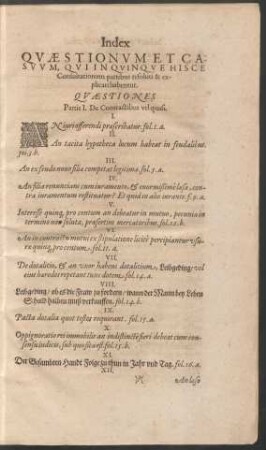 Index
QVÆSTIONVM ET CA-
SVVM, QVI IN QVINQVE HISCE
Consultationum partibus resoluti & ex-
plicati habentur.
QVÆSTIONES
Partis I. De Contractibus vel quasi.
I.
iuri afferendi præscribatur. fol. 1.a.
II.
An tacita hypotheca locum habeat in feudalibus.
fol. 3.b.
III.
An ex feudo nouo filia competat legitima. fol. 5.a.
IV.
An filia renuncians cum iuramento, & enormissimè læsa, con-
tra iuramentum restituatur? Et quid in alio iuramen. f. 9.a.
V.
Interesse quinq, pro centum an debeatur in mutuo, pecunia in
termino non soluta, præsertim mercatoribus. fol. 10.b.
VI.
An in contractu mutui ex stipulatione licitè percipiantur vsu-
ræ quinq, pro centum. fol. 11.a.
VII.
De dotalitio, & an vxor habens dotalitium, Leibgeding / vel
eius hæredes repetant suam dotem. fol. 14.a.
VIII.
Leibgeding / ob es die Fraw zufordern / wann der Mann bey Leben
Schuld halben muß verkauffen. fol. 14.b.
IX.
Pacta dotalia quot testes requirant. fol. 15.a.
X.
Oppignoratio rei immobilis an indistinctè fieri debeat cum con-
sensu iudicis, sub quo sita est. fol. 15.b.
XI.
Der Gesambten Handt Folge zuthun in Jahr vnd Tag. fol. 16.a.
XII.
An læso